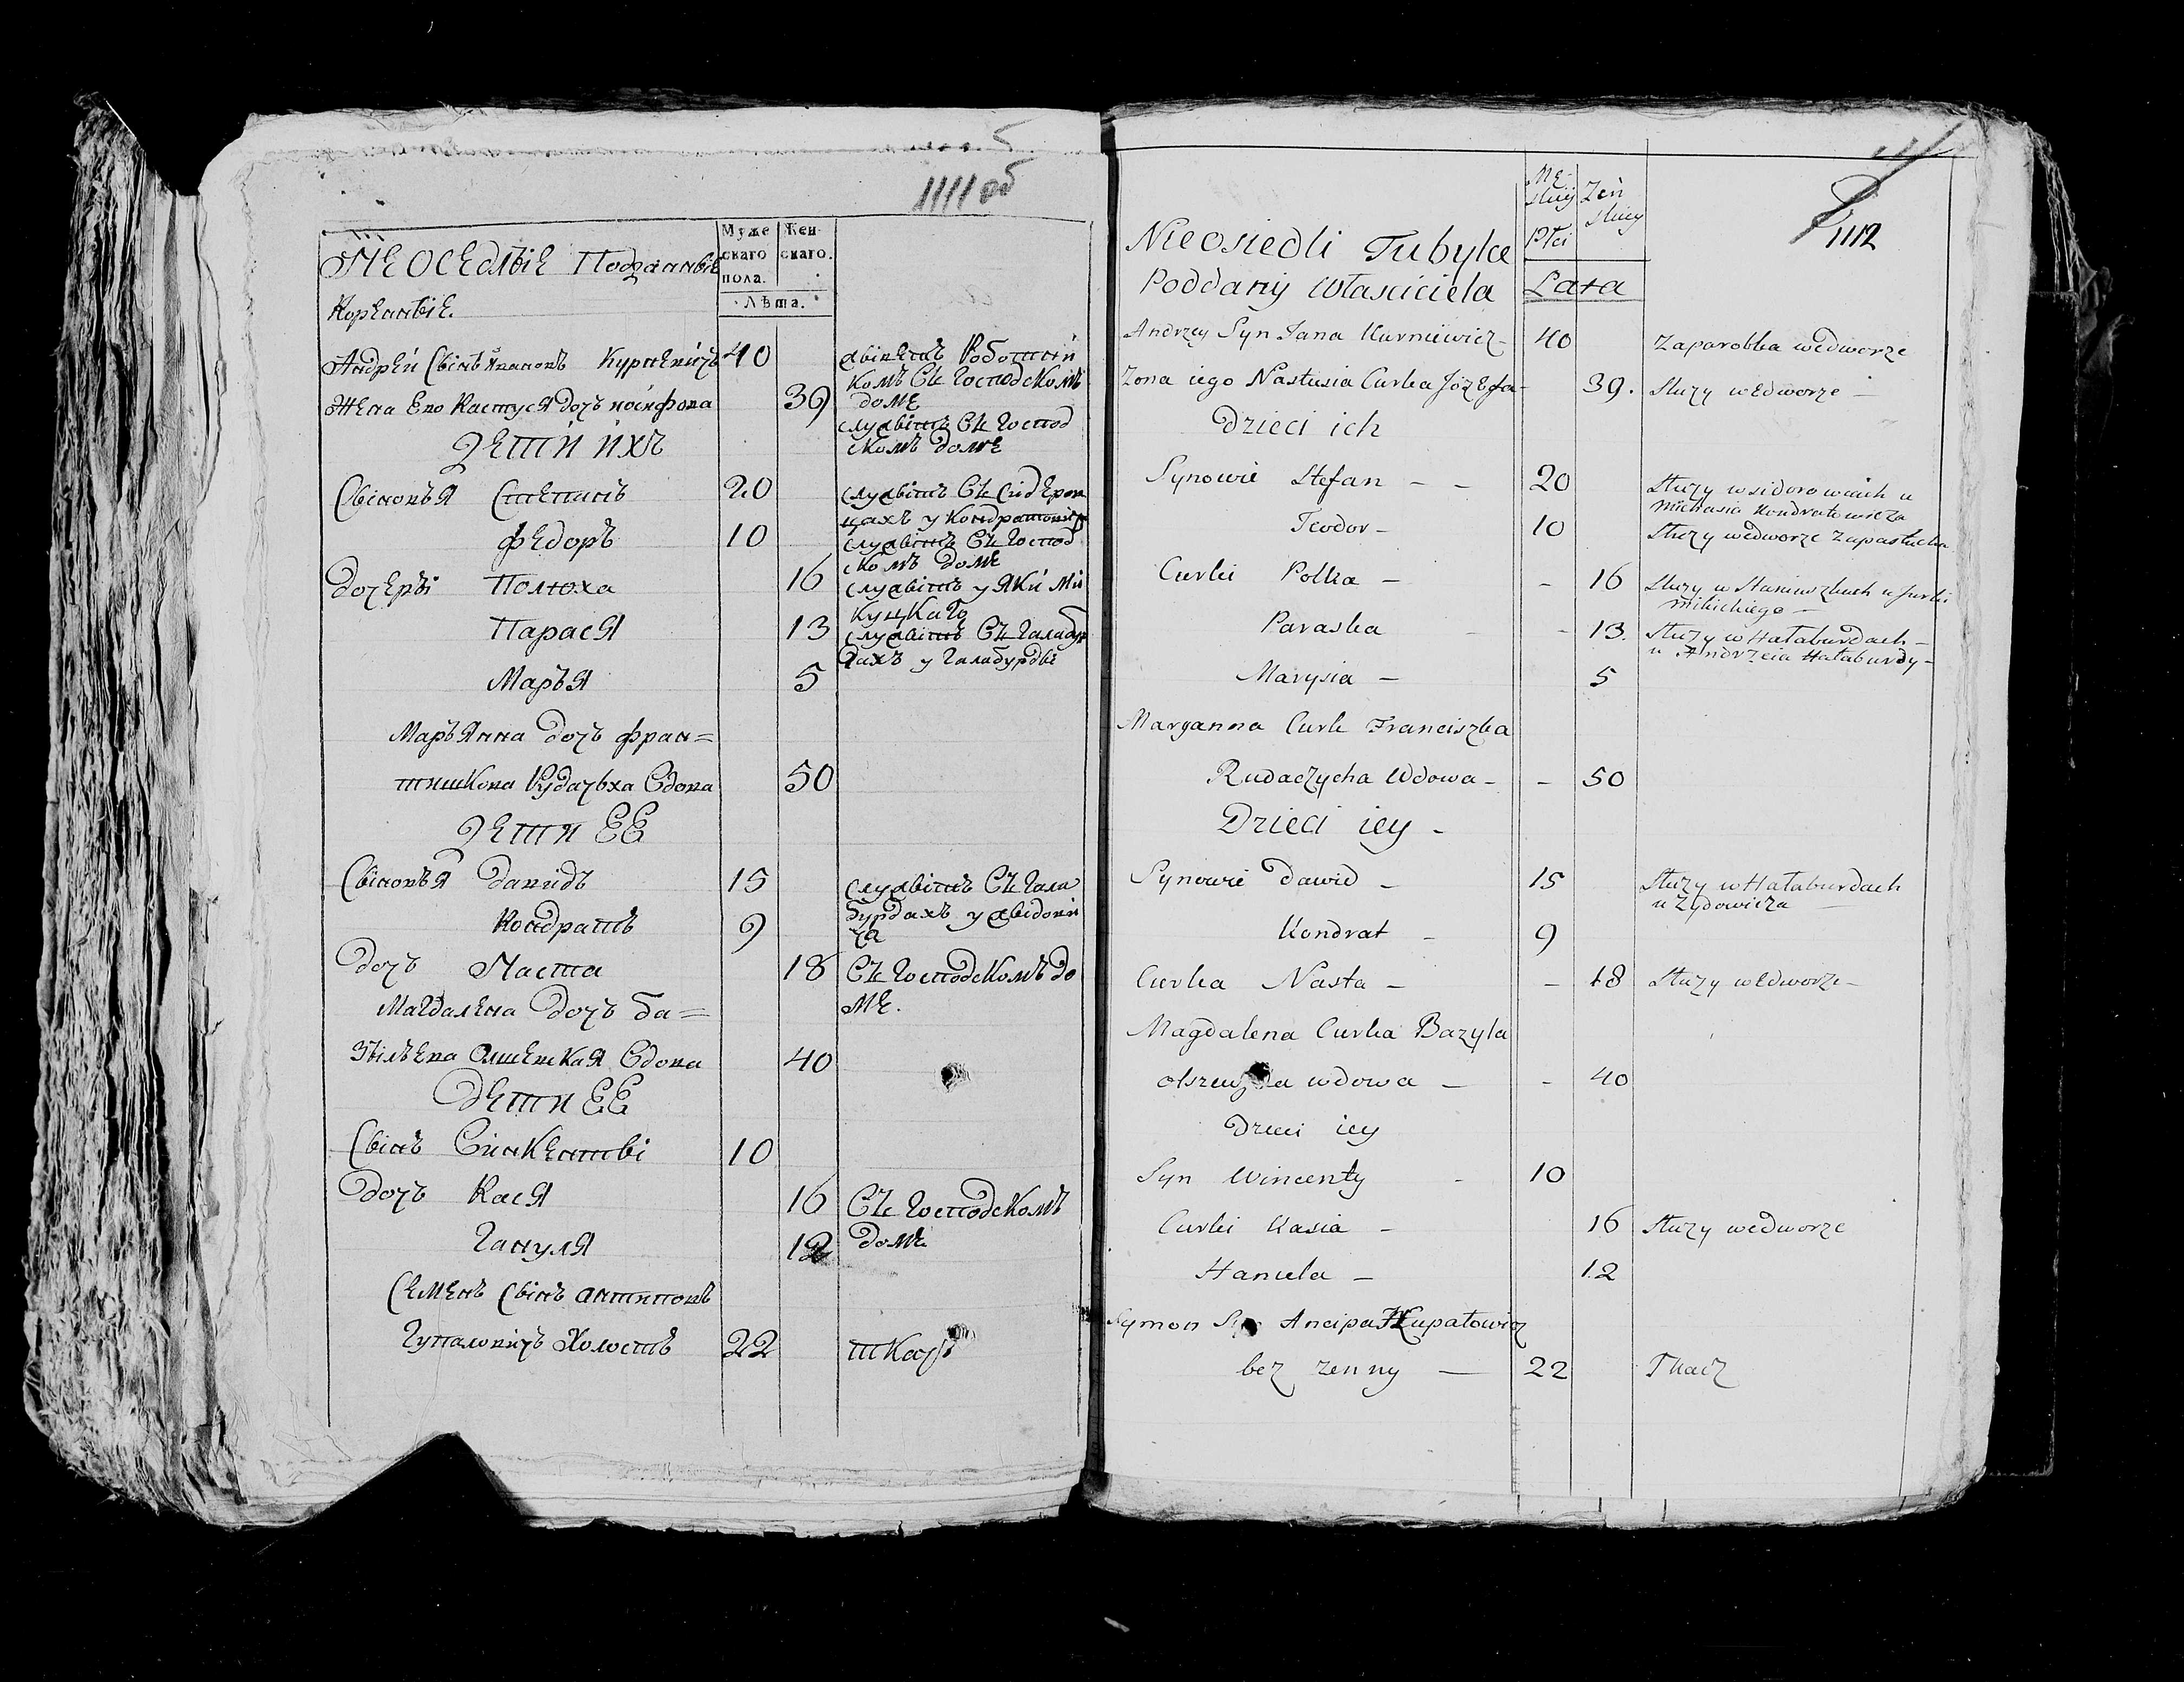 1111 об
НЕОСЕДЛЫЕ Подданыіе
Коренныіе.
Муже
скаго
пола.
Жен
скаго.
Лѣта.
Андрей Сынъ Ивановъ Курневичъ 40 живетъ Работни
комъ Въ Господскомъ
доме
Жена Его Настуся дочъ иосифова 39 служытъ Въ Господ
скомъ доме
Дети ихъ
Сыновья Степанъ 20 служытъ Въ Сидеров
цахъ у Кондратовича
Федоръ 10 служытъ Въ Господ
скомъ доме
Дочеры Полюха 16 служытъ у Яки Ми
куцкаго
Парася 13 служытъ Въ Галабур
дахъ у Галабурды
Марья 5
Марьянна дочъ фран=
тишкова Рудачыха Вдова 50
Дети ЕЕ
Сыновья Давидъ 15 служытъ Въ Гала
бурдахъ у жыдови
ча
Кондратъ 9
Дочъ Наста 18 Въ Господскомъ до
ме.
Магдалена Дочъ Ба=
зылева Олшевская Вдова 40
Дети ЕЕ
Сынъ Винкенты 10
Дочъ Кася 16 Въ Господскомъ
доме
Гануля 12
Семенъ Сынъ антиповъ
Гупаловичъ Холостъ 22 ткачъ
1112
Nieosiedli Tubylce
Poddany Własciciela
Mę
skiy
Płci
Zeń
skiey
Lata
Andrzey Syn Jana Kurniewicz - 40 Zaparobka wedworze
Zona iego Nastusia Curka Józefa - 39. Służy wedworze -
Dzieci ich
Synowie Stefan - - 20 Służy w sidorowcach u
Michasia Kondratowicza
Teodor - 10 Służy wedworze Zapastucha
Curki Polka - - 16 Służy w Staniuszkach u Jurki
Mikickiego -
Paraska - - 13. Służy w Hałaburdach -
u Andrzeia Hałaburdy -
Marysia - 5
Maryanna Curk Franciszka
Rudaczycha Wdowa - - 50
Dzieci iey -
Synowie Dawid - 15 Służy w Hałaburdach
u Zydowicza
Kondrat - 9
Curka Nasta - - 18 Służy wedworze -
Magdalena Curka Bazyla
olszewska wdowa - - 40
Dzieci iey
Syn Wincenty - 10
Curki Kasia - 16 Służy wedworze
Hanula - 12
Symon Syn Ancipa Hupałowicz
bez zenny - 22 Tkacz